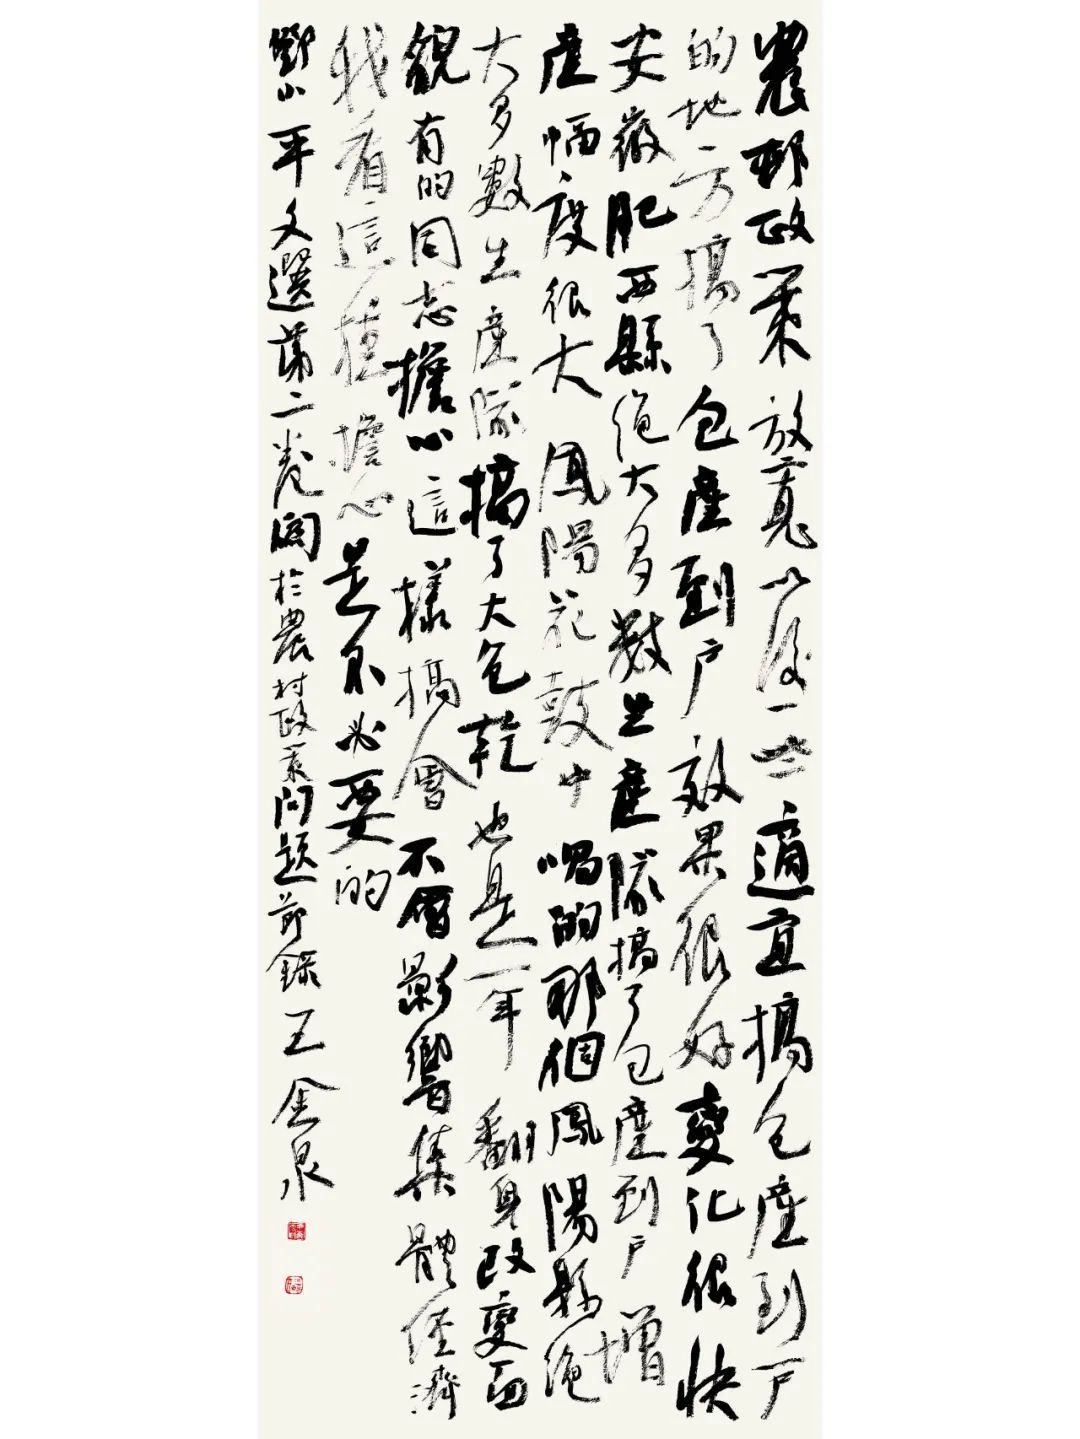 農邨政策放寬以後一些適宜搞包產到戶
的地方搞了包產到戶效果很好變化很快
安徽肥西縣絕大多數生產隊搞了包產到戶增
產幅度很大鳳陽花鼓中唱的那個鳳陽縣絕
大多數生產隊搞了大包乾也是一年翻身改變面
貌有的同志擔心這樣搞會不會影響集體經濟
我看這種擔心是不必要的
鄧小平文選第二卷關於農村政策問題節錄王金泉